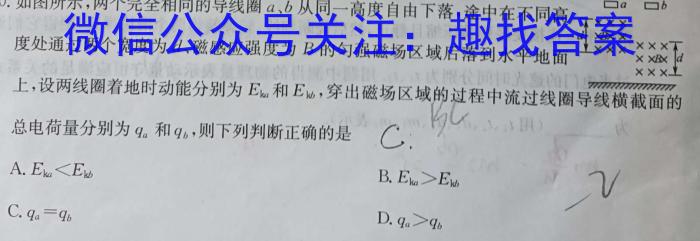 如图所示,两个完全相同的导线圈 a、b 从同一高度自由下落,途中在不同高
□a □b
度处通过两个宽度为 d、磁感应强度为 B 的匀强磁场区域后落到水平地面
微信公众号关注：趣找答案
×××
×××
×B×
××× d
上,设两线圈着地时动能分别为 Eka 和 Ekb,穿出磁场区域的过程中流过线圈导线横截面的
总电荷量分别为 qa 和 qb,则下列判断正确的是
C. BC
A. Eka<Ekb
B. Eka>Ekb
C. qa=qb
D. qa>qb